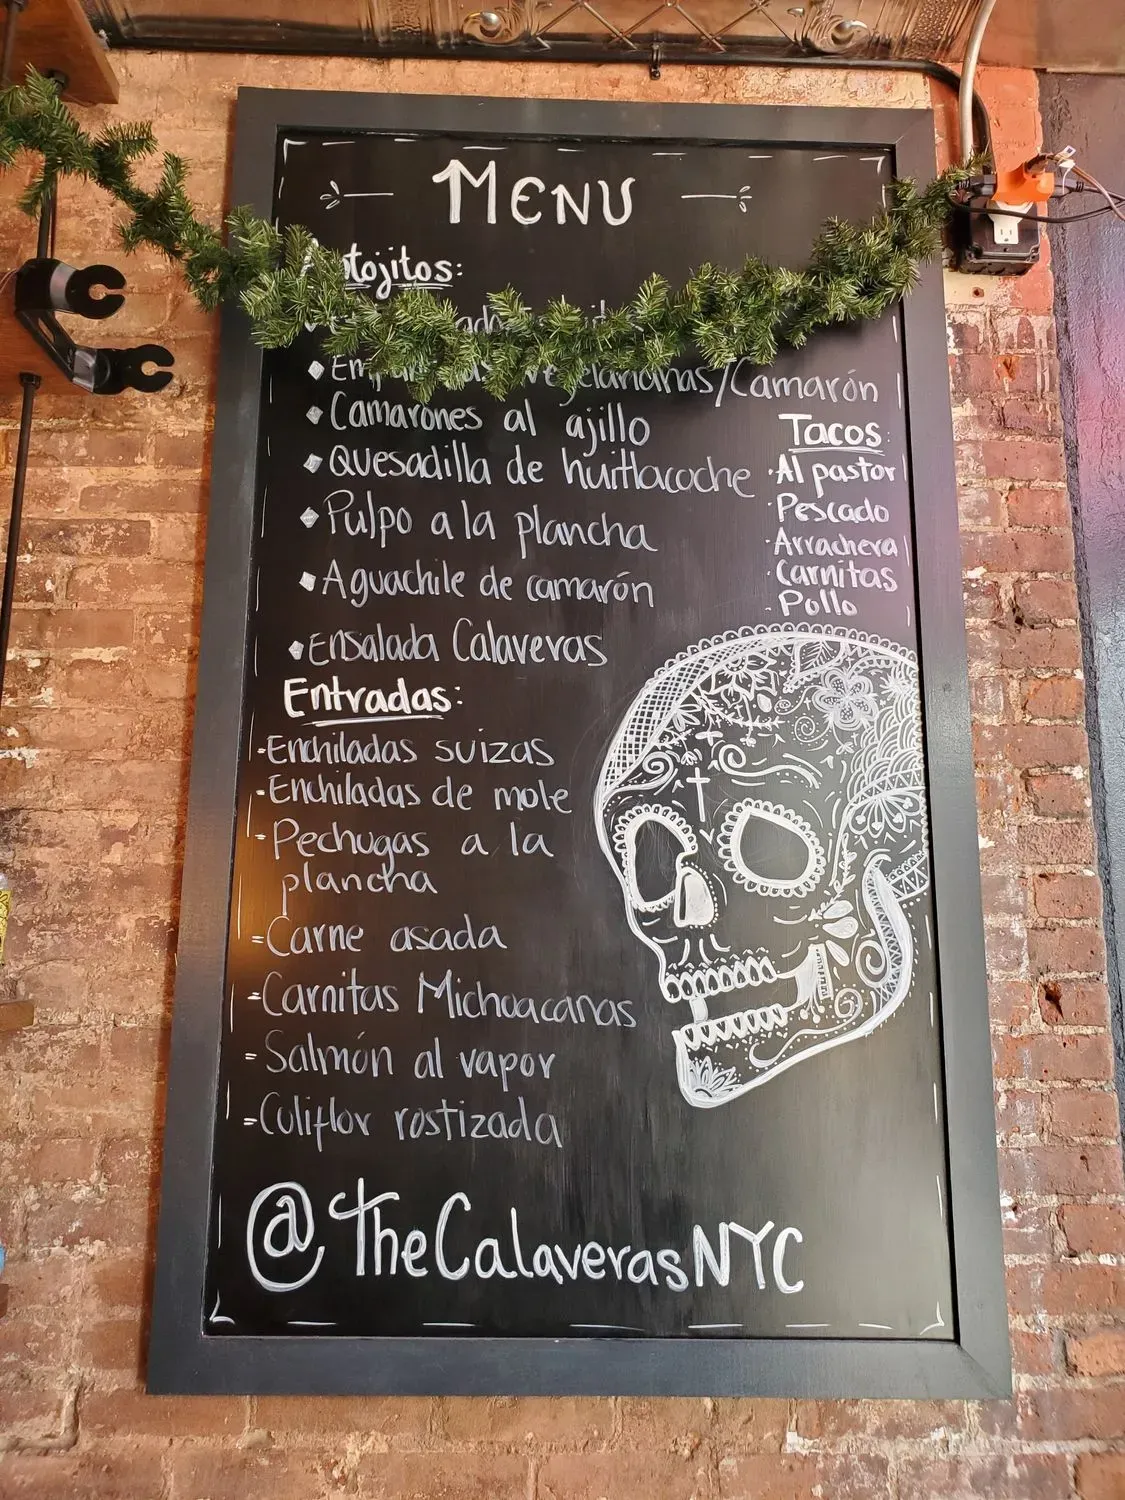 MENU
Camarón
Camarones al ajillo
Quesadilla de huitlacoche
Pulpo a la plancha
Aguachile de camarón
Ensalada Calaveras
Tacos:
Al pastor
Pescado
Arrachera
Carnitas
Pollo
Entradas:
Enchiladas suizas
Enchiladas de mole
Pechugas a la
plancha
Carne asada
Carnitas Michoacanas
Salmón al vapor
Culiflor rostizada
@TheCalaverasNYC